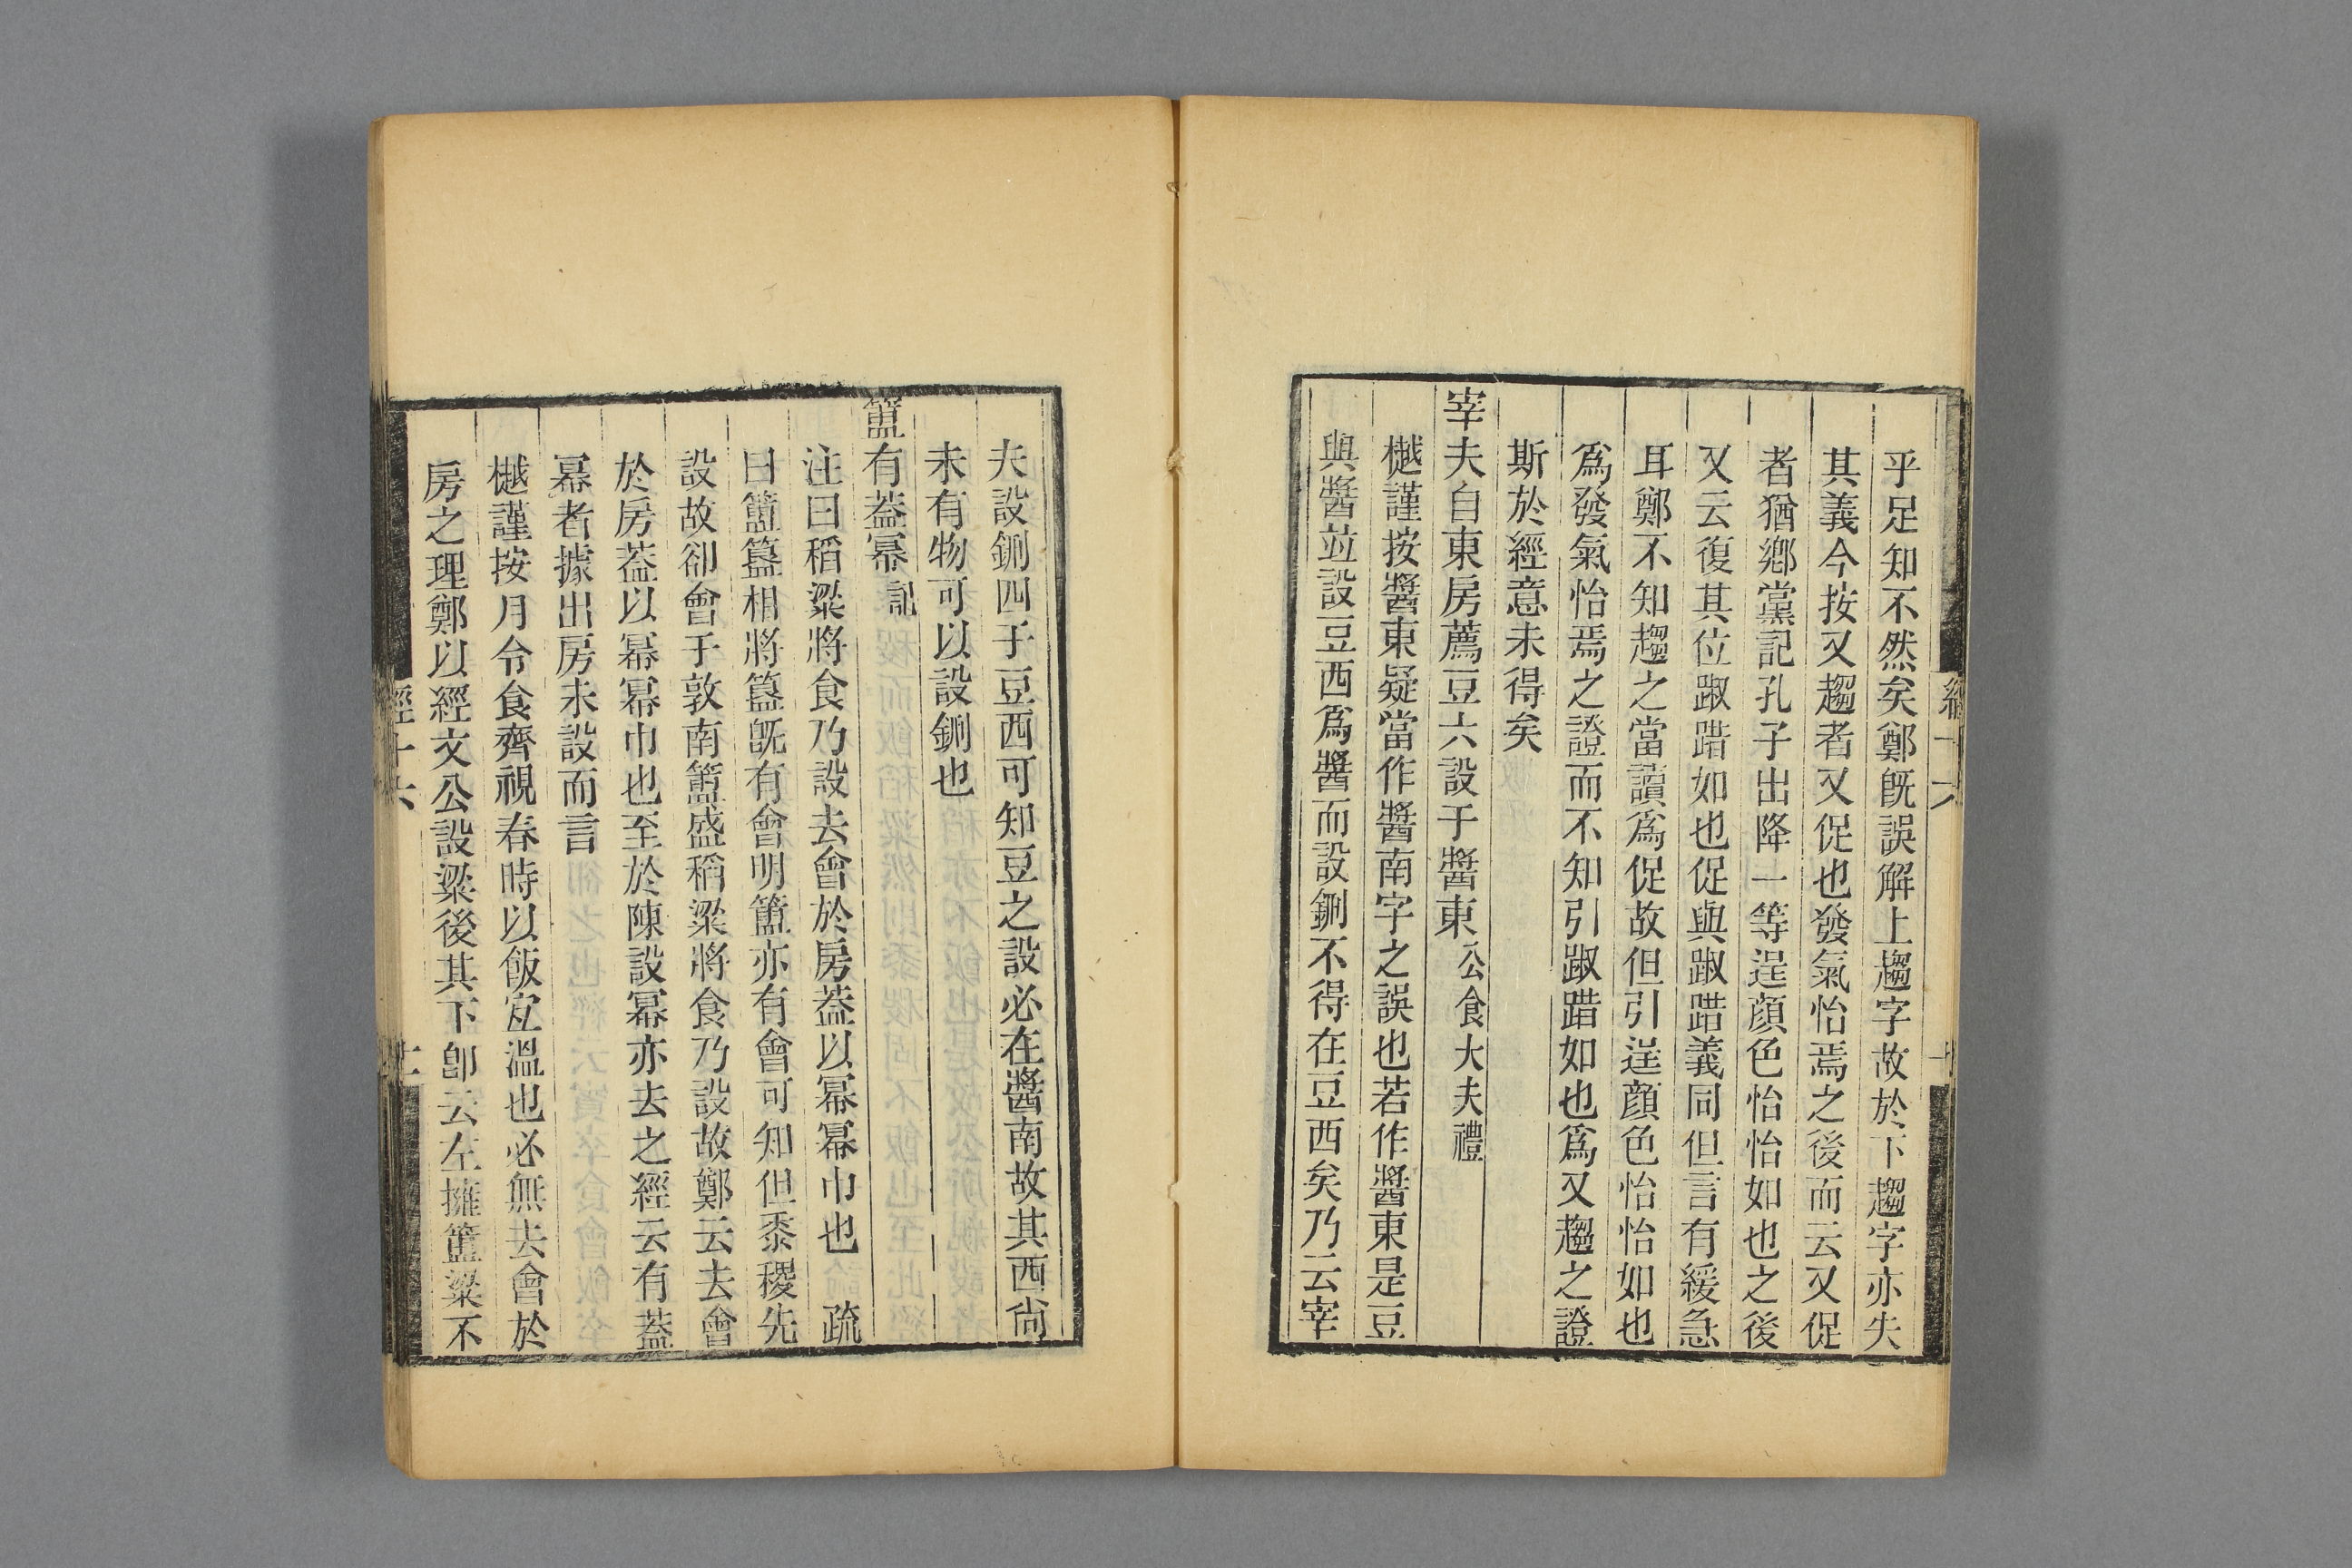 乎足知不然矣鄭旣誤解上趨字故於下趨字亦失
其義今按又趨者又促也發氣怡焉之後而云又促
者猶鄕黨記孔子出降一等逞顏色怡怡如也之後
又云復其位踧踖如也促與踧踖義同但言有緩急
耳鄭不知趨之當讀爲促故但引逞顏色怡怡如也
爲發氣怡焉之證而不知引踧踖如也爲又趨之證
斯於經意未得矣
宰夫自東房薦豆六設于醬東公食大夫禮
樾謹按醬東疑當作醬南字之誤也若作醬東是豆
與醬竝設豆西爲醬而設鉶不得在豆西矣乃云宰
夫設鉶四于豆西可知豆之設必在醬南故其西尙
未有物可以設鉶也
簠有蓋冪記
注曰稻粱將食乃設去會於房蓋以冪冪巾也 疏
曰簠簋相將簋旣有會明簠亦有會可知但黍稷先
設故卻會于敦南簠盛稻粱將食乃設故鄭云去會
於房蓋以冪冪巾也至於陳設冪亦去之經云有蓋
冪者據出房未設而言
樾謹按月令食齊視春時以飯宜溫也必無去會於
房之理鄭以經文公設粱後其下卽云左擁簠粱不
經十六